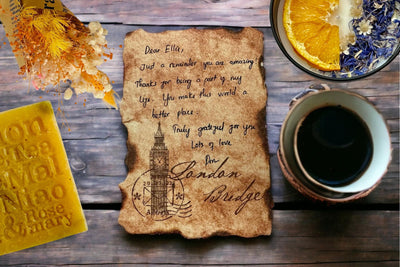 Dear Ella,
Just a reminder you are amazing
Thanks for being a part of my
life. You make this world a
better place.
Truly grateful for you
Lots of love
London
Bridge